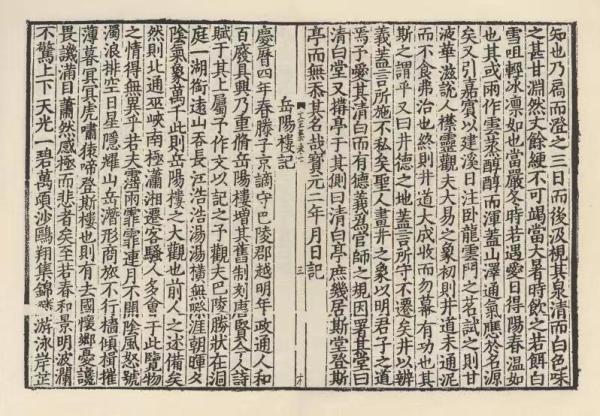 知也乃扃而澄之三日而後汲視其泉清而白色味
之甚甘淵然丈餘綆不可竭當大暑時飲之若餌白
雪咀輕冰凛如也當嚴冬時若遇愛日得陽春溫如
也其或雨作雲蒸醇醇而渾蓋山澤通氣應於名源
矣又引嘉賔以建溪日注卧龍雲門之茗試之則甘
液華滋說人襟靈觀夫大易之象初則井道未通泥
而不食弗治也終則井道大成收而勿幕有功也其
斯之謂乎又曰井德之地蓋言所守不遷矣井以辨
義蓋言所施不私矣聖人畫井之象以明君子之
焉予愛其清白而有德義爲官師之規因署其堂曰
清白堂又構亭于其側曰清白亭庶幾居斯堂登斯
亭而無忝其名哉寶元二年月日記
文正集卷七
三
方
岳陽樓記
慶曆四年春滕子京謫守巴陵郡越明年政通人和
百廢具興乃重脩岳陽樓增其舊制刻唐賢今人詩
賦于其上屬予作文以記之予觀夫巴陵勝狀在洞
庭一湖銜遠山吞長江浩浩湯湯橫無際涯朝暉夕
隂氣象萬千此則岳陽樓之大觀也前人之述備矣
然則北通巫峽南極瀟湘遷客騷人多會于此覽物
之情得無異乎若夫霪雨霏霏連月不開隂風怒號
濁浪排空日星隱耀山岳潛形商旅不行檣傾檝摧
薄暮冥冥虎嘯猿啼登斯樓也則有去國懷鄉憂讒
畏譏滿目蕭然感極而悲者矣至若春和景明波瀾
不驚上下天光一碧萬頃沙鷗翔集錦鱗游泳岸芷